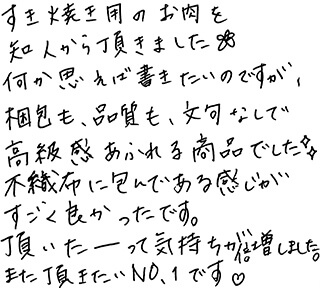 すき焼き用のお肉を
知人から頂きました
何か思えば書きたいのですが、
梱包も、品質も、文句なしで
高級感あふれる商品でした
不織布に包んである感じが
すごく良かったです。
頂いたーって気持ちが倍増しました。
また頂きたいNO.1です♡